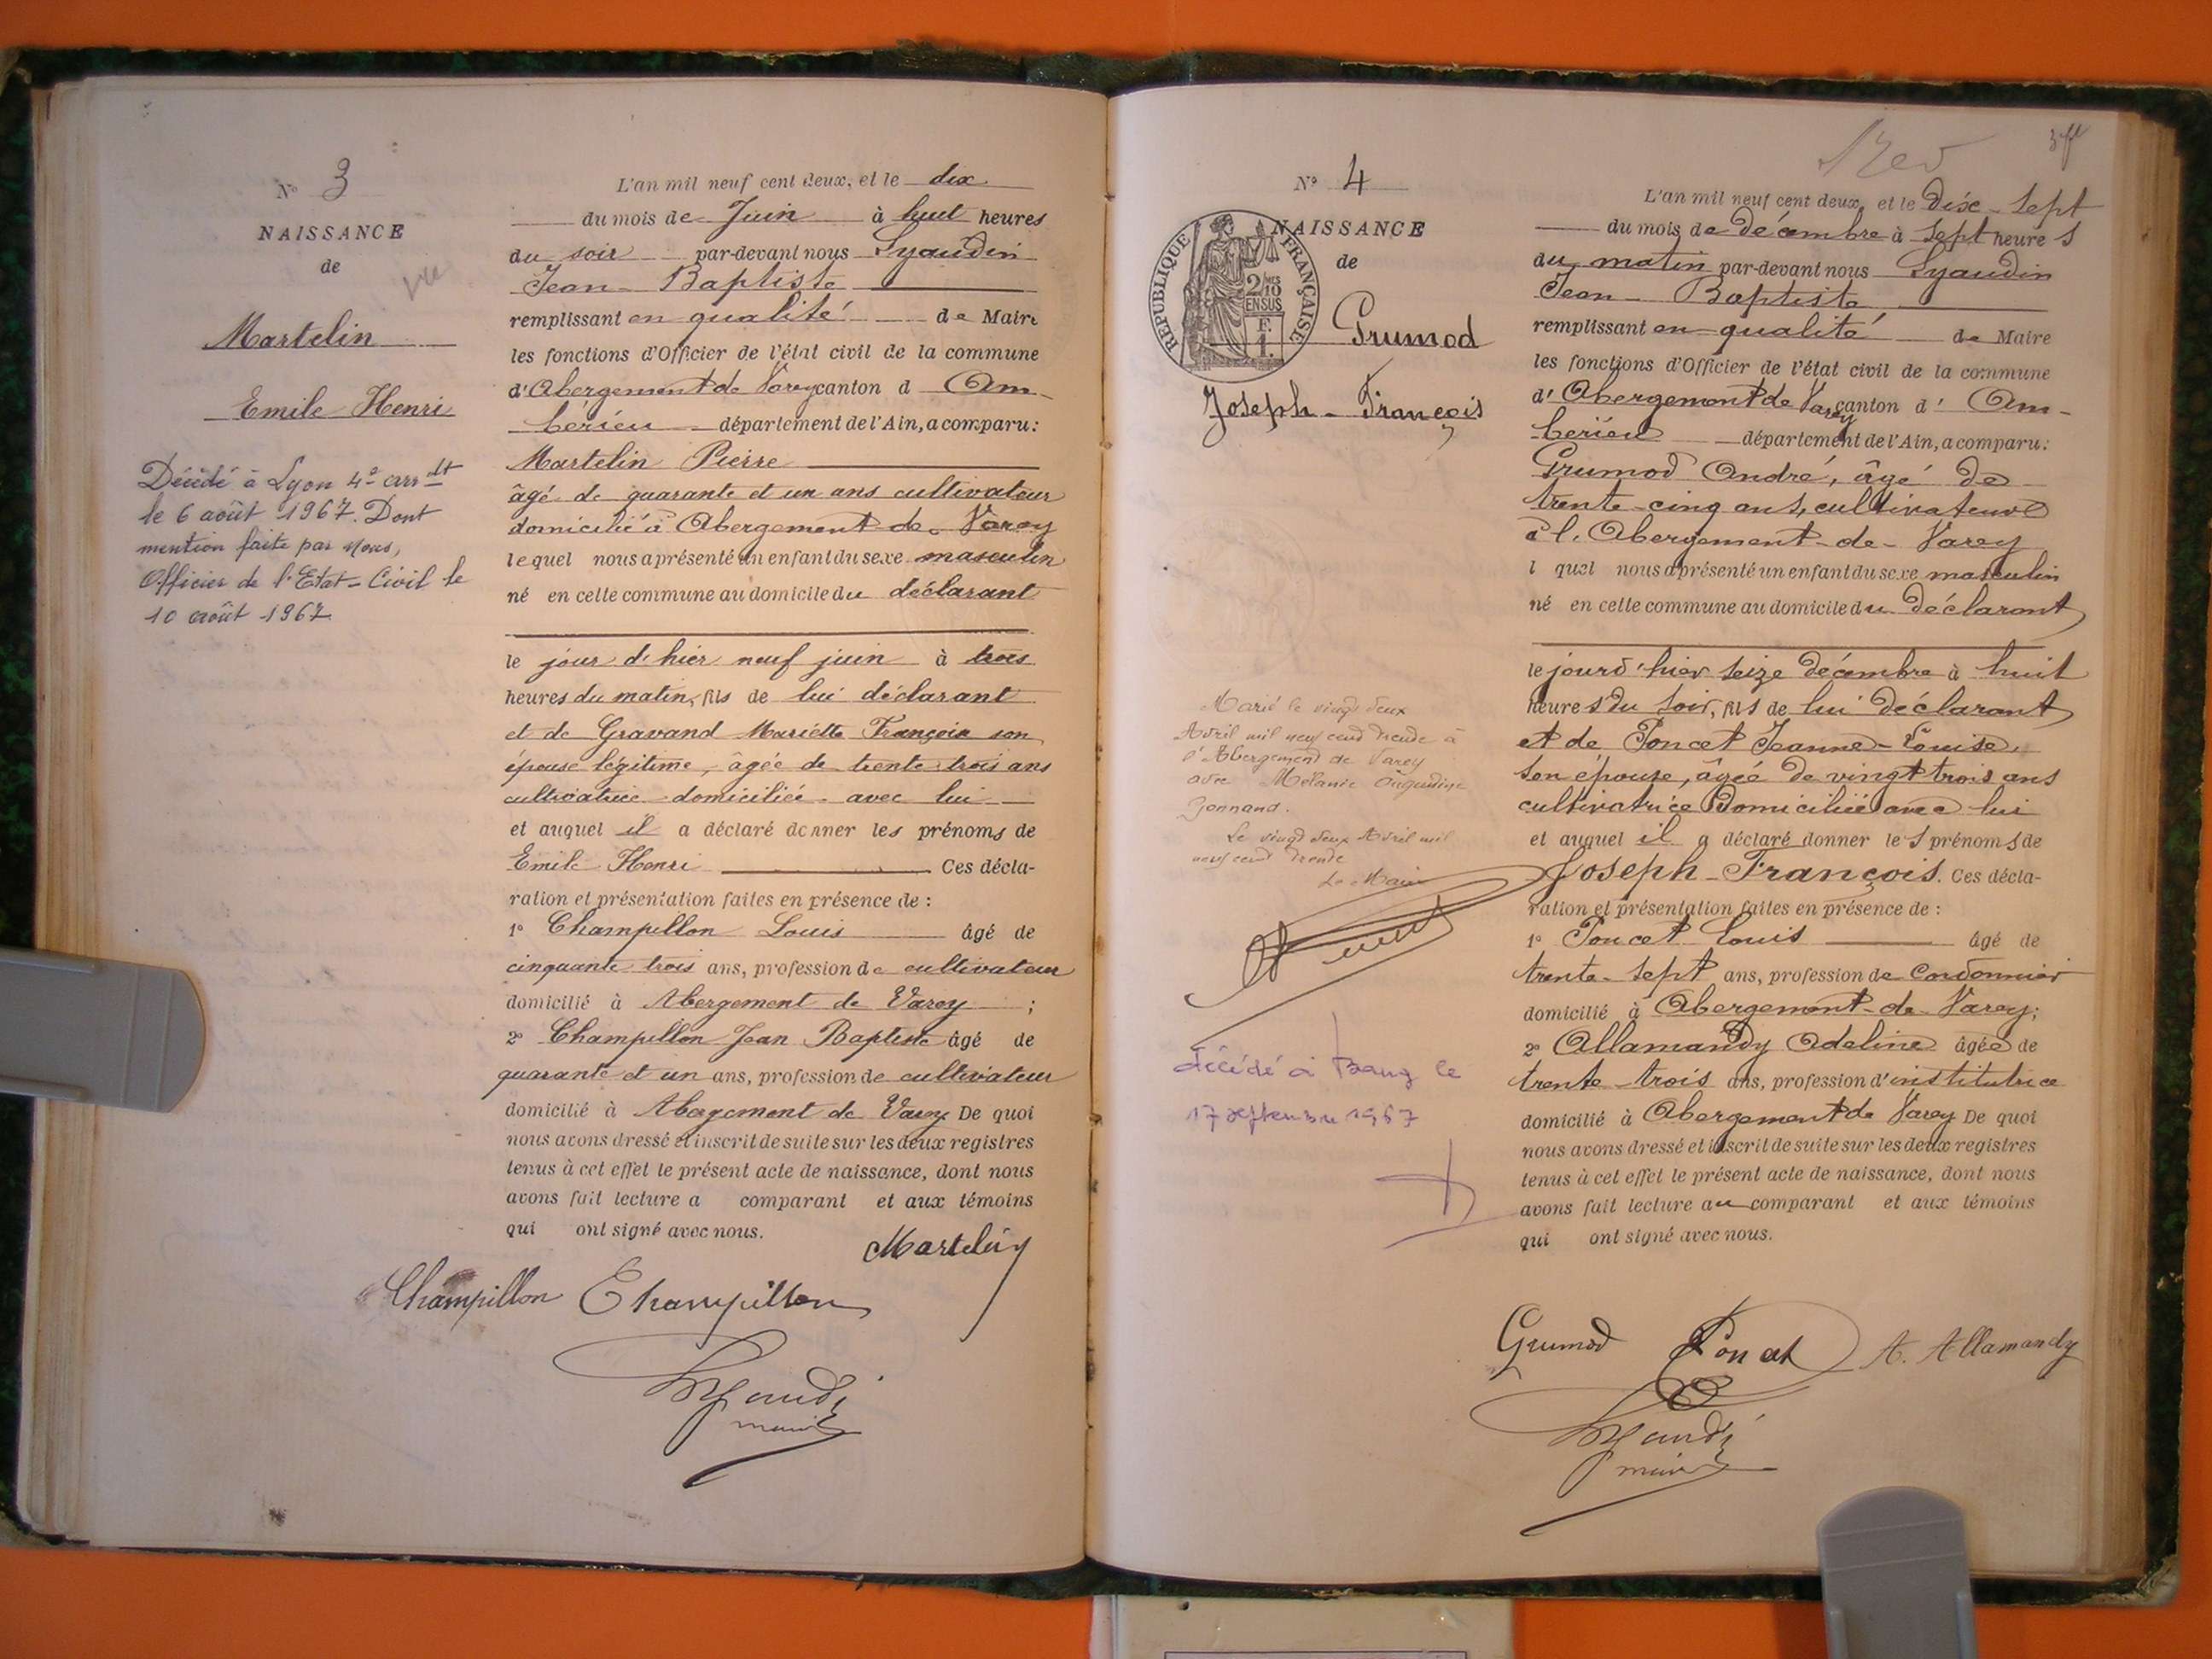 N° 3
NAISSANCE
de
vu
Martelin
Emile Henri
Décédé à Lyon 4e arrdt
le 6 août 1967. Dont
mention faite par Nous,
Officier de l'Etat-Civil le
10 août 1967.
L'an mil neuf cent deux, et le dix
du mois de Juin à huit heures
du soir par-devant nous Lyaudin
Jean Baptiste
remplissant en qualité de Maire
les fonctions d'Officier de l'état civil de la commune
d'Abergement de Varey canton d Am-
bérieu département de l'Ain, a comparu:
Martelin Pierre
âgé de quarante et un ans cultivateur
domicilié à Abergement de Varey
lequel nous a présenté un enfant du sexe masculin
né en cette commune au domicile du déclarant
le jour d'hier neuf juin à trois
heures du matin, fils de lui déclarant
et de Gravand Mariette Françoise son
épouse légitime, âgée de trente trois ans
cultivatrice domiciliée avec lui
et auquel il a déclaré donner les prénoms de
Emile Henri Ces décla-
ration et présentation faites en présence de :
1° Champillon Louis âgé de
cinquante trois ans, profession de cultivateur
domicilié à Abergement de Varey ;
2° Champillon Jean Baptiste âgé de
quarante et un ans, profession de cultivateur
domicilié à Abergement de Varey De quoi
nous avons dressé et inscrit de suite sur les deux registres
tenus à cet effet le présent acte de naissance, dont nous
avons fait lecture a comparant et aux témoins
qui ont signé avec nous.
Martelin
Champillon Champillon
Lyaudin
maire
3
N° 4
NAISSANCE
de
RÉPUBLIQUE FRANÇAISE
2/10 EN SUS
F. 1.
Grumod
Joseph-François
Marié le vingt deux
Avril mil neuf cent trente à
l'Abergement de Varey
avec Mélanie
Le vingt deux Avril mil
neuf cent trente
Le Maire
Décédé à Bourg le
17 septembre 1967
L'an mil neuf cent deux, et le dix-sept
du mois de décembre à sept heures
du matin par-devant nous Lyaudin
Jean Baptiste
remplissant en qualité de Maire
les fonctions d'Officier de l'état civil de la commune
d'Abergement de Varey canton d'Am-
bérieu département de l'Ain, a comparu:
Grumod André, âgé de
trente-cinq ans, cultivateur
à l'Abergement-de-Varey
l quel nous a présenté un enfant du sexe masculin
né en cette commune au domicile du déclarant
le jour d'hier seize décembre à huit
heures du soir, fils de lui déclarant
et de Poncet Jeanne-Louise,
son épouse, âgée de vingt trois ans
cultivatrice domiciliée avec lui
et auquel il a déclaré donner les prénoms de
Joseph-François. Ces décla-
ration et présentation faites en présence de :
1° Poncet Louis âgé de
trente-sept ans, profession de Cordonnier
domicilié à Abergement-de-Varey;
2° Allamandy Adeline âgée de
trente-trois ans, profession d'institutrice
domicilié à Abergement de Varey De quoi
nous avons dressé et inscrit de suite sur les deux registres
tenus à cet effet le présent acte de naissance, dont nous
avons fait lecture au comparant et aux témoins
qui ont signé avec nous.
Grumod Poncet A. Allamandy
Lyaudin
maire